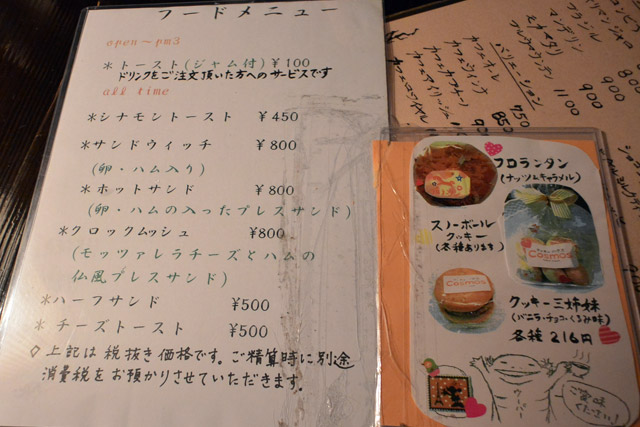 フードメニュー
open～pm3
*トースト(ジャム付)¥100
ドリンクをご注文頂いた方へのサービスです
all time
*シナモントースト ¥450
*サンドウィッチ ¥800
(卵・ハム入り)
*ホットサンド ¥800
(卵・ハムの入ったプレスサンド)
*クロックムッシュ ¥800
(モッツァレラチーズとハムの
仏風プレスサンド)
*ハーフサンド ¥500
*チーズトースト ¥500
◇上記は税抜き価格です。ご精算時に別途
消費税をお預かりさせていただきます。
フロランタン
(ナッツ&キャラメル)
スノーボール
クッキー
(各種あります)
Cosmos
Cosmos
クッキー三姉妹
(バニラ・チョコ・くるみ味)
各種216円
ウーパー
ご賞味
ください!
ブラジル
マンデリン
800
900
1100
バリエーション
750
850
900